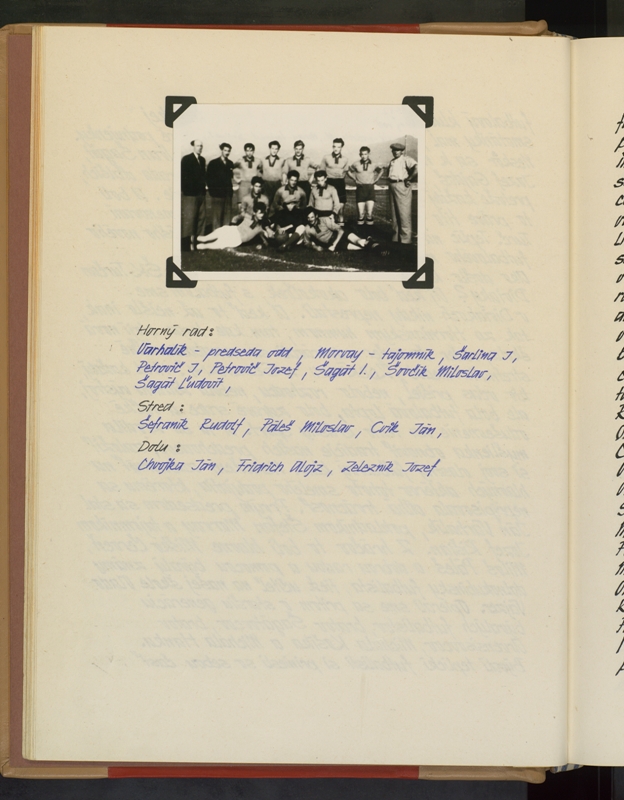 Horný rad:
Varhalík - predseda odd, Morvay - tajomník, Šarlina J,
Petrovič J, Petrovič Jozef, Šagát I., Šovčík Miloslav,
Šagát Ľudovít,
Stred:
Šefraník Rudolf, Páleš Miloslav, Cvik Ján,
Dolu:
Chvojka Ján, Fridrich Alojz, Železník Jozef